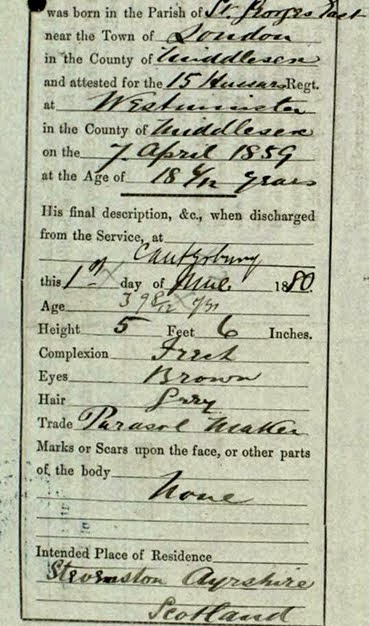 was born in the Parish of St. Georges East
near the Town of London
in the County of Middlesex
and attested for the 15 Hussars Regt.
at Westminster
in the County of Middlesex
on the 7 April 1859
at the Age of 18 /12 years
His final description, &c., when discharged
from the Service, at
Canterbury
this 1st day of June 1880.
Age 39 /12 yrs
Height 5 Feet 6 Inches.
Complexion Fresh
Eyes Brown
Hair Grey
Trade Parasol Maker
Marks or Scars upon the face, or other parts
of the body
None
Intended Place of Residence
Stevenston Ayrshire
Scotland